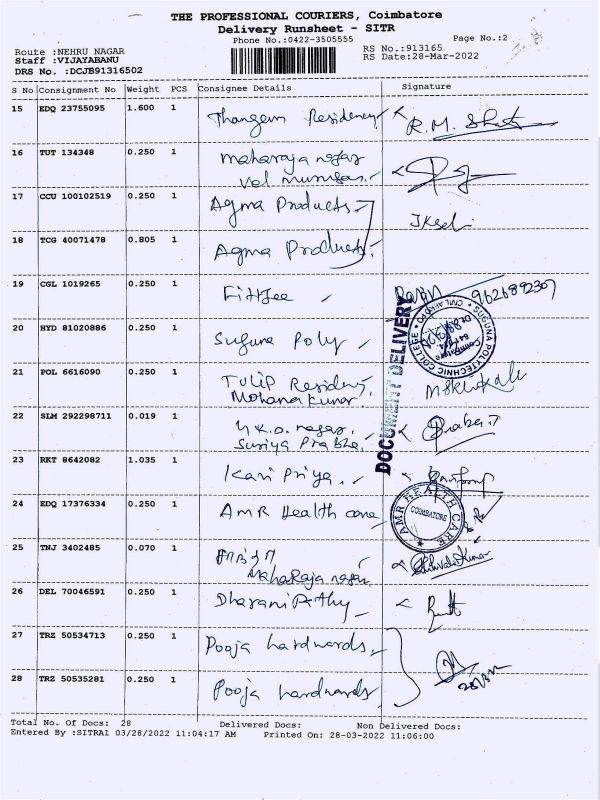 THE PROFESSIONAL COURIERS, Coimbatore
Delivery Runsheet - SITR
Phone No.:0422-3505555
Page No.:2
Route :NEHRU NAGAR
RS No.:913165
Staff :VIJAYABANU
RS Date:28-Mar-2022
DRS No. :DCJB91316502
S No Consignment No Weight PCS Consignee Details Signature
15 EDQ 23755095 1.600 1 Thangem Residency R.M.
16 TUT 134348 0.250 1 maharaja nagar
vel murugan
17 CCU 100102519 0.250 1 Agma Products
18 TCG 40071478 0.805 1 Agma Products
19 CGL 1019265 0.250 1 Fittjee 9626892307
20 HYD 81020886 0.250 1 Suguna Poly
SUGUNA POLYTECHNIC COLLEGE
Coimbatore
DOCUMENT DELIVERY
21 POL 6616090 0.250 1 Tulip Residency
Mohana Kumar
22 SLM 292298711 0.019 1 nagar
Suriya Prabha
23 RKT 8642082 1.035 1 Kavi Priya
24 EDQ 17376334 0.250 1 AMR Health care
AMR HEALTH CARE
COIMBATORE
25 TNJ 3402485 0.070 1
Maharaja nagar
26 DEL 70046591 0.250 1 Dharani
27 TRZ 50534713 0.250 1 Pooja hardwards
28 TRZ 50535281 0.250 1 Pooja hardwards
Total No. Of Docs: 28 Delivered Docs: Non Delivered Docs:
Entered By :SITRA1 03/28/2022 11:04:17 AM Printed On: 28-03-2022 11:06:00